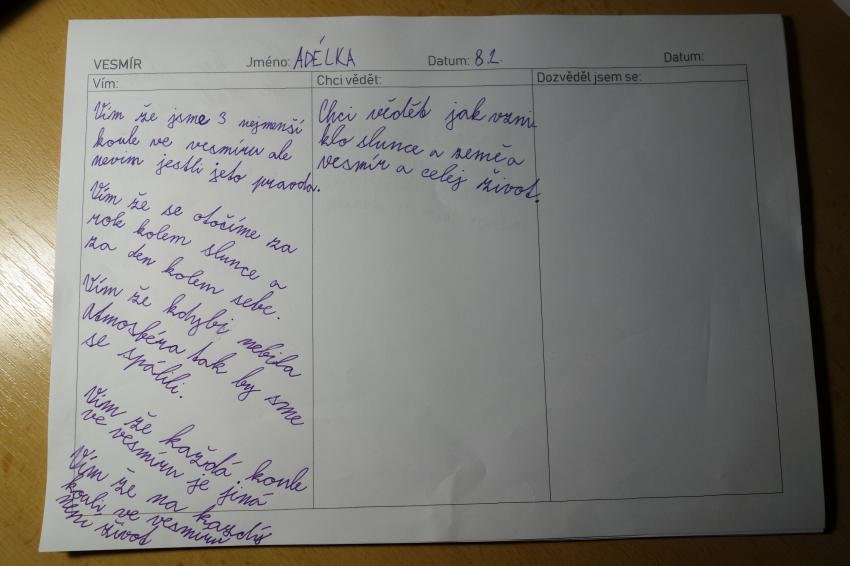 VESMÍR Jméno: ADÉLKA Datum: 8.1. Datum:
Vím: Chci vědět: Dozvěděl jsem se:
Vím že jsme 3 nejmenší
koule ve vesmíru ale
nevim jestli jeto pravda.
Vím že se otočíme za
rok kolem slunce a
za den kolem sebe.
Vím že kdybi nebila
Atmosféra tak by sme
se spálili.
Vím že každá koule
ve vesmíru je jiná
Vím že na každý
kouli ve vesmíru
není život
Chci vědět jak vzni
klo slunce a země a
vesmír a celej život.